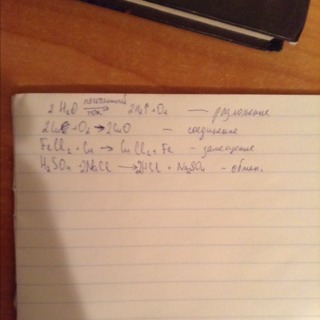 2 H₂O постоянный ток → 2H₂↑ + O₂ — разложение
2Cu + O₂ → 2CuO — соединение
FeCl₂ + Cu → CuCl₂ + Fe — замещение
H₂SO₄ 2NaCl → 2HCl + Na₂SO₄ — обмен.